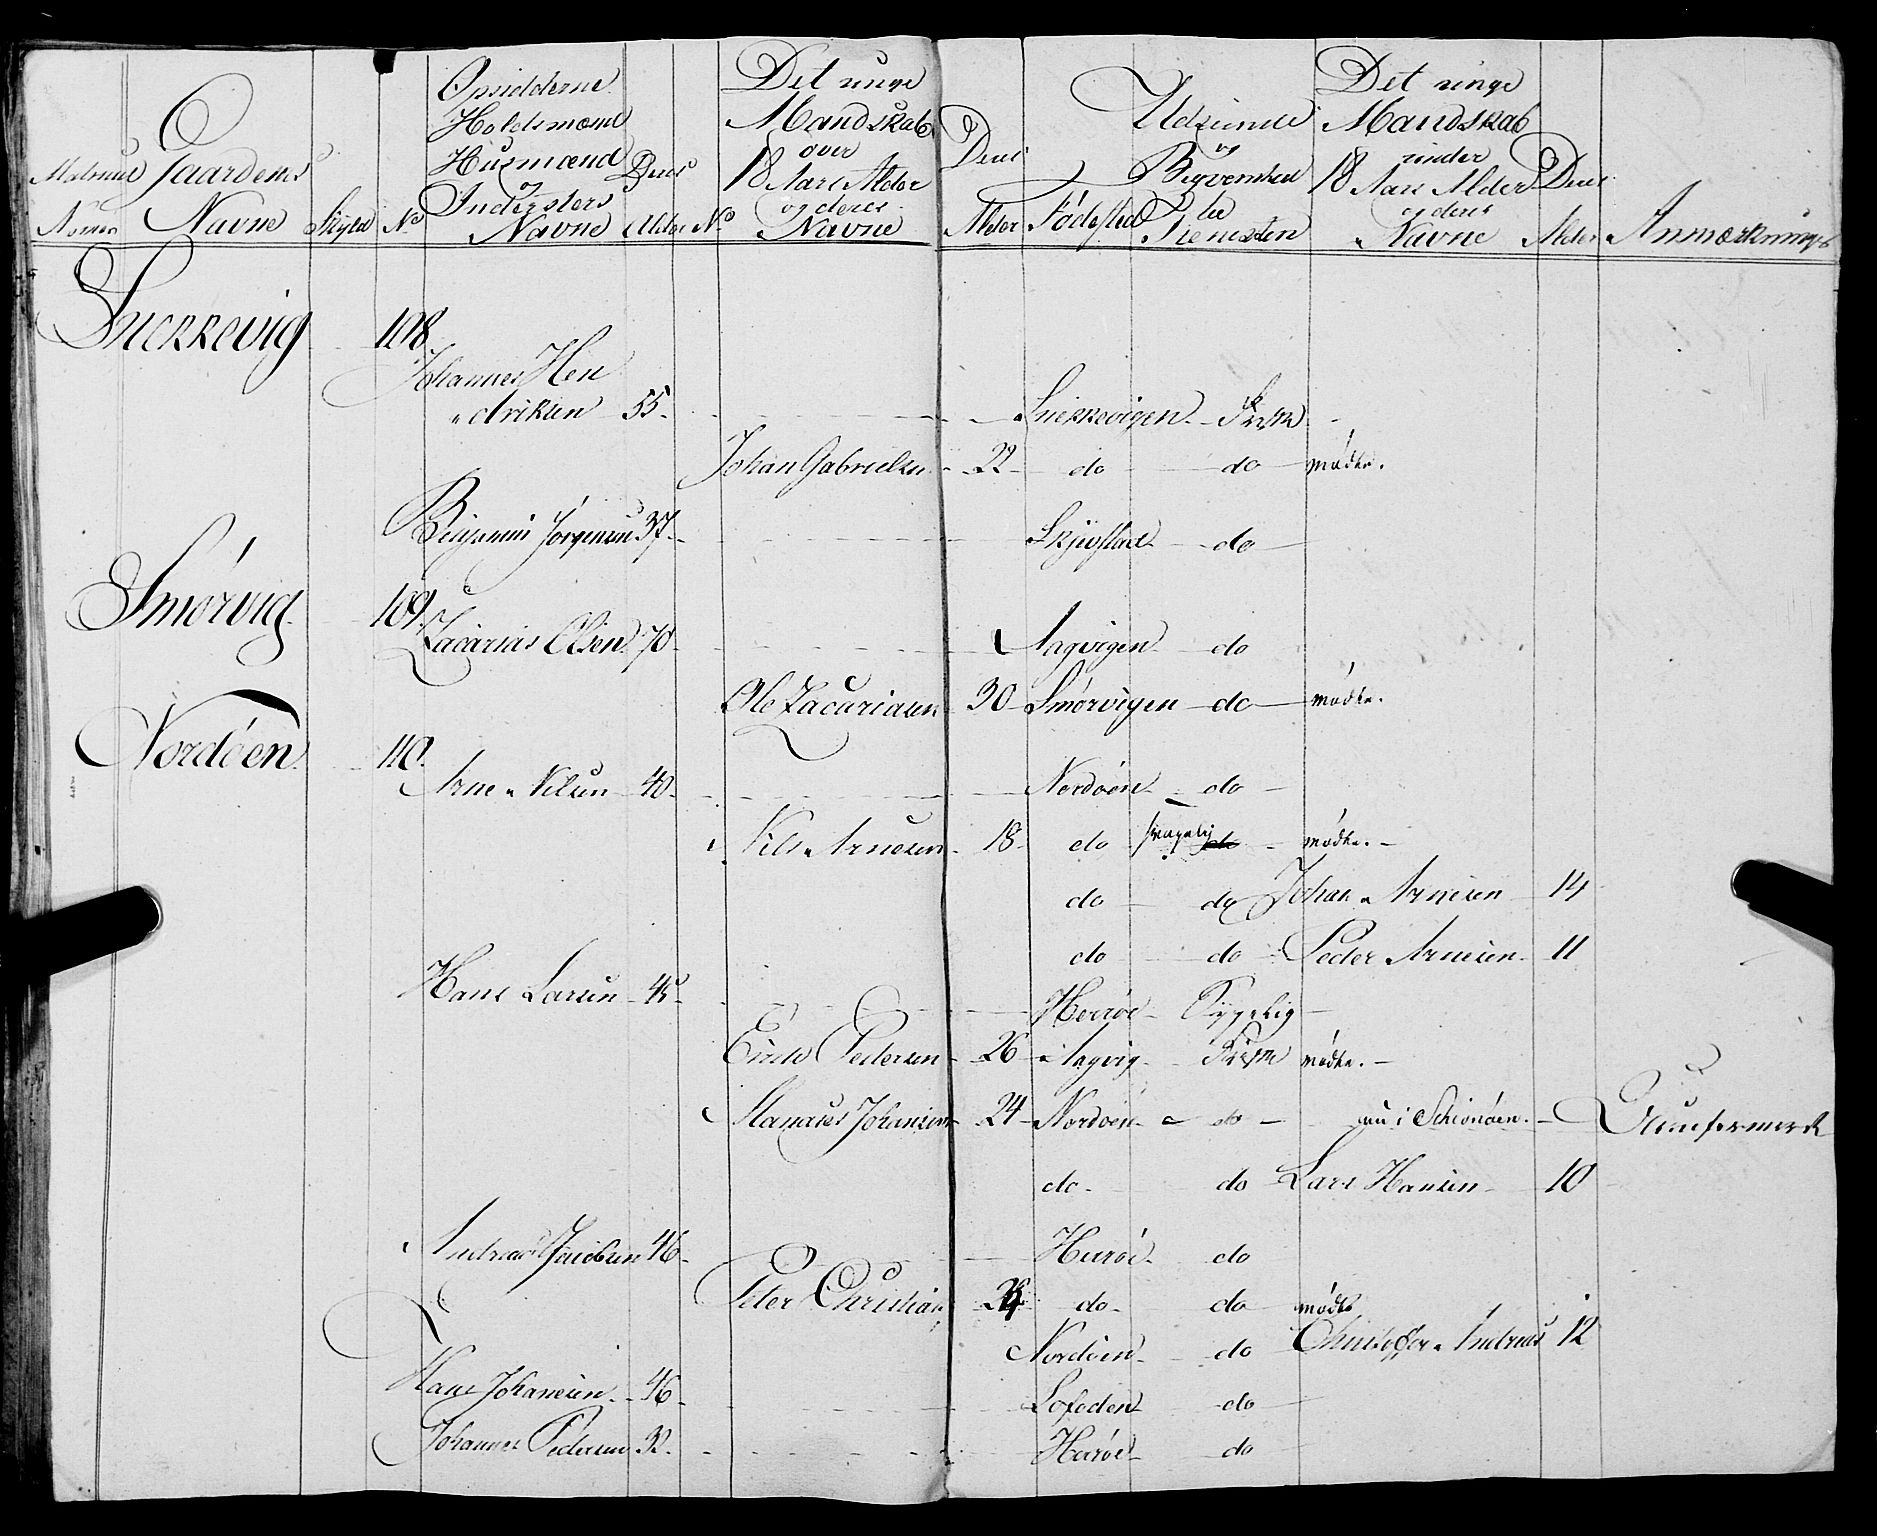 Matricul Nomer
Gaardens Navne
Skyld
No
Opsidderne Holdsmænd Husmænd Indersters Navne
Deres Alder
No
Det unge Mandskab over 18 Aars Alder og deres Navne
Deres Alder
Fødested
Udseende og Beqvemhed til Tienesten
Det unge Mandskab under 18 Aars Alder og deres Navne
Deres Alder
Anmærkninger
Snekkevig 108
Johannes Hendriksen 55 Snekkevigen Frisk
Johan Gabrielsen 22 do do mødte.
Benjamin Jørgensen 37 do
Smørvig 109
Zacarias Olsen 70 Aagvigen do
Ole Zacariasen 30 Smørvigen do mødte.
Nordøen 110
Arne Nilsen 40 Nordøen do
Nils Arnesen 18 do svagelig do mødte.
do do Johan Arnesen 14
do do Peder Arnesen 11
Hans Larsen 45 Herøe Sygelig
Pedersen 26 Aagvig Frisk mødte.
Manases Johansen 24 Nordøen do nu i Schionøen.
do do Lars Hansen 10
Andreas Jacobsen 46 Herøe do
Peter Christian do do mødte
Nordøen do Christoffer Andreas 12
Hans Johansen 46 Lofoden do
Johannes Pedersen 32 Herøe do